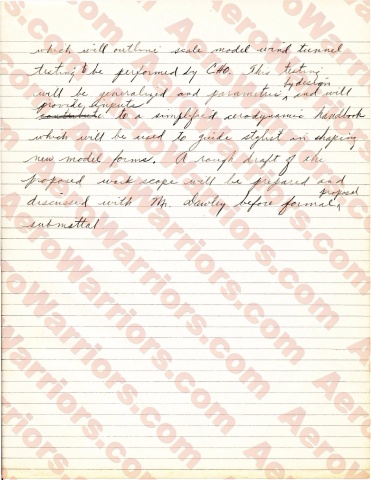 which will outline scale model wind tunnel
testing to be performed by CHO. This testing
by design
will be generalized and parametric and will
provide inputs
contribute to a simplifaid aerodynamic handbook
which will be used to guide stylist in shaping
new model forms. A rough draft of the
proposed work scope will be prepared and
proposal
discussed with Mr. Dawley before formal
submattal
AeroWarriors.com